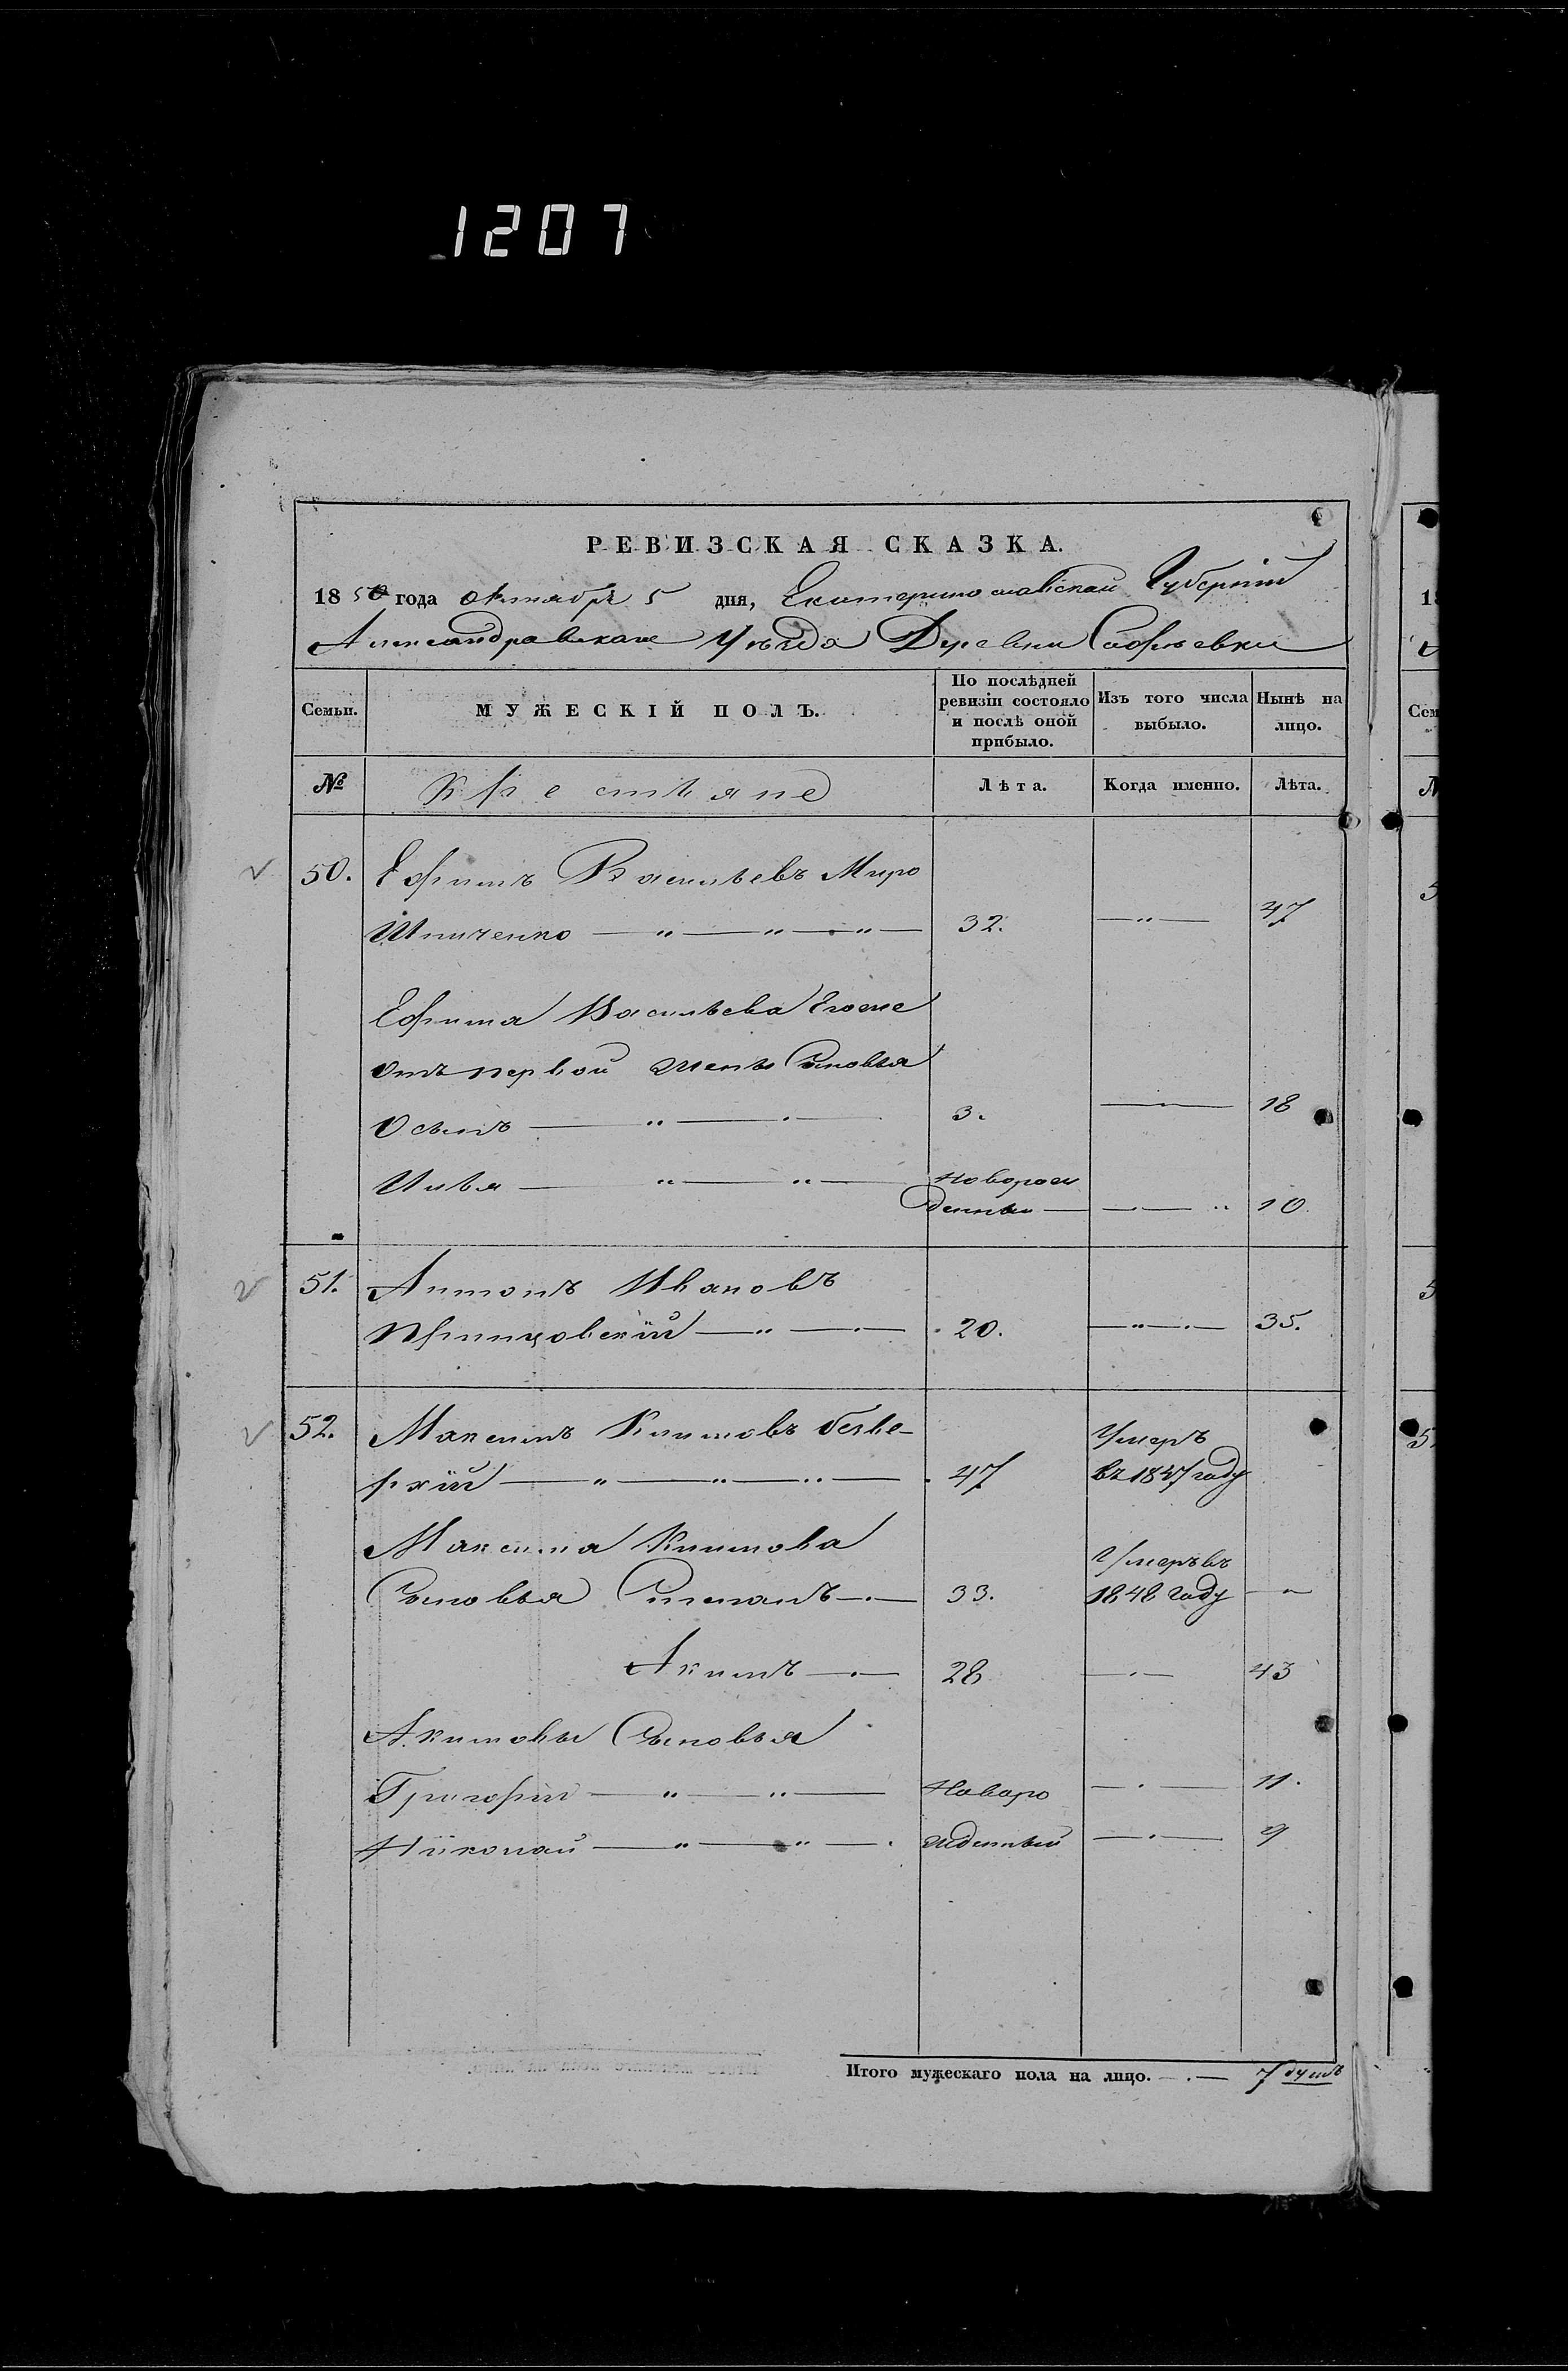 1207
РЕВИЗСКАЯ СКАЗКА.
1850 года октября 5 дня, Екатеринославской Губернии
Александровскаго Уѣзда Деревни Софіевки
Семьи.
МУЖЕСКІЙ ПОЛЪ.
По послѣдней ревизіи состояло и послѣ оной прибыло.
Изъ того числа выбыло.
Нынѣ на лицо.
№
Крестьяне
Лѣта.
Когда именно.
Лѣта.
50. Ефимъ Васильевъ Миро
шниченко 32. 47
Ефима Васильева Его же
отъ первой жены Сыновья
Осипъ 3. 18
Илья новорож
денный 10.
51. Антонъ Ивановъ
20. 35.
52. Максимъ Климовъ Умеръ
47 въ 1847 году
Максима Климова Умеръ въ
Сыновья Степанъ 33. 1848 году
Акимъ 28 43
Акимовы Сыновья
Григорій Новоро 11.
Николай жденный 9
Итого мужескаго пола на лицо. 7 душъ